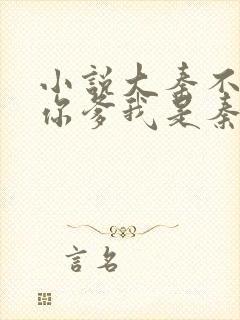 小説大秦不
你爹我是秦
言名